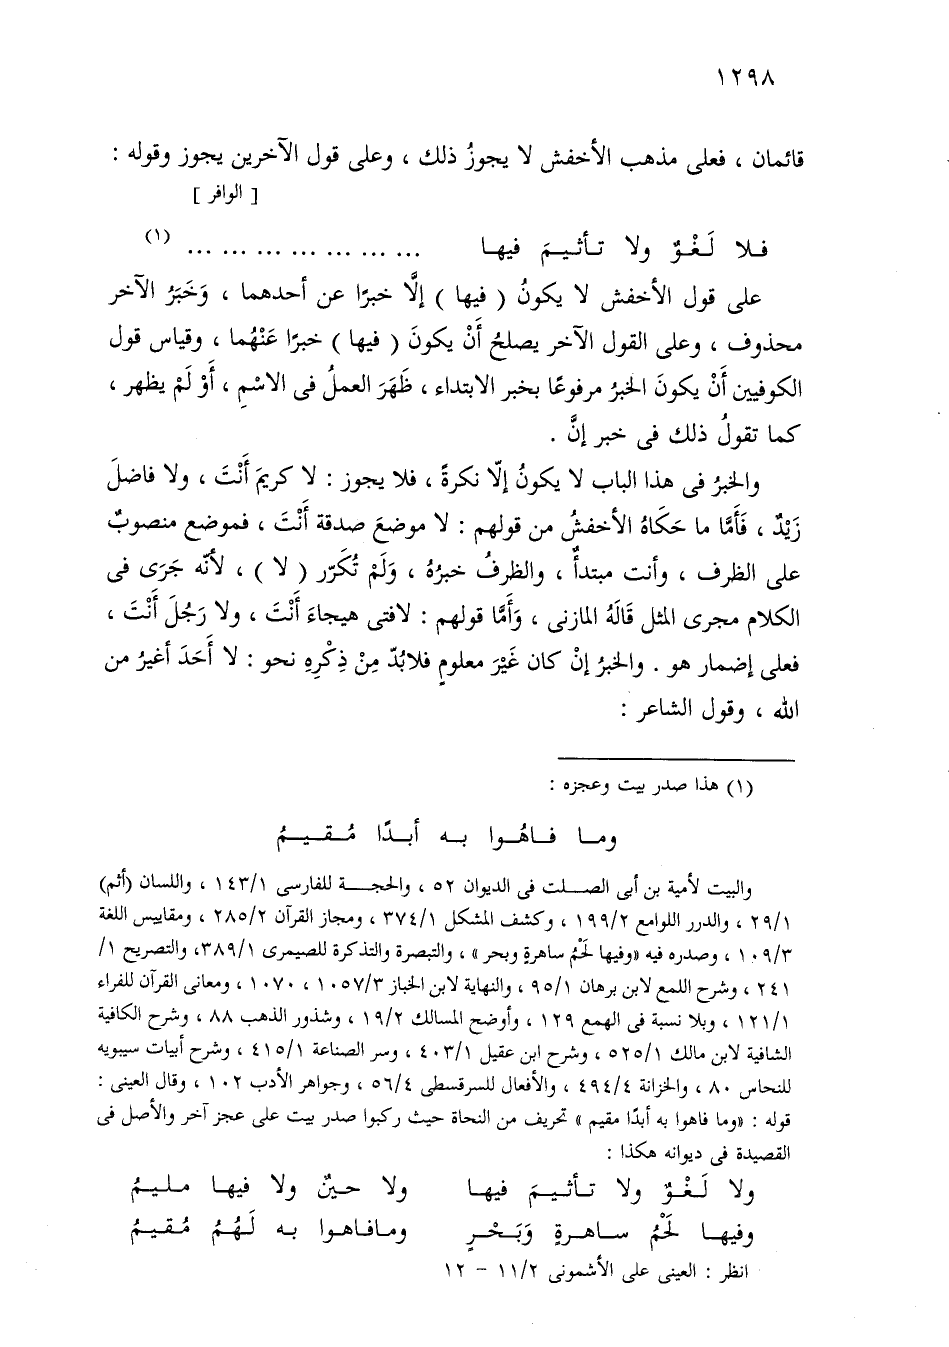 ١٢٩٨
قائمان ، فعلى مذهب الأخفش لا يجوزُ ذلك ، وعلى قول الآخرين يجوز وقوله :
[ الوافر ]
فـلا لَـغْـوٌ ولا تـأثـيـمَ فيهـا ... ... ... ... ... ... ... (١)
على قول الأخفش لا يكونُ ( فيها ) إلَّا خبرًا عن أحدهما ، وَخَبَرُ الآخر
محذوف ، وعلى القول الآخر يصلحُ أَنْ يكونَ ( فيها ) خبرًا عَنْهُما ، وقياس قول
الكوفيين أَنْ يكونَ الخبرُ مرفوعًا بخبر الابتداء ، ظَهَرَ العملُ فى الاسْمِ ، أَوْ لَمْ يظهر ،
كما تقولُ ذلك فى خبر إنَّ .
والخبرُ فى هذا الباب لا يكونُ إلّا نكرةً ، فلا يجوز : لا كريمَ أَنْتَ ، ولا فاضلَ
زَيْدٌ ، فَأَمَّا ما حَكَاهُ الأخفشُ من قولهم : لا موضعَ صدقة أَنْتَ ، فموضع منصوبٌ
على الظرف ، وأنت مبتدأٌ ، والظرفُ خبرُهُ ، وَلَمْ تُكَرّر ( لا ) ، لأنّه جَرَى فى
الكلام مجرى المثل قَالَهُ المازنى ، وَأَمَّا قولهم : لافتى هيجاءَ أَنْتَ ، ولا رَجُلَ أَنْتَ ،
فعلى إضمار هو . والخبرُ إنْ كان غَيْرَ معلومٍ فلابُدّ مِنْ ذِكْرِهِ نحو : لا أَحَدَ أغيرُ من
الله ، وقول الشاعر :
(١) هذا صدر بيت وعجزه :
ومـا فـاهُـوا بـه أبـدًا مُـقـيـمُ
والبيت لأمية بن أبى الصـلت فى الديوان ٥٢ ، والحجـة للفارسى ١٤٣/١ ، واللسان (أثم)
٢٩/١ ، والدرر اللوامع ١٩٩/٢ ، وكشف المشكل ٣٧٤/١ ، ومجاز القرآن ٢٨٥/٢ ، ومقاييس اللغة
١٠٩/٣ ، وصدره فيه «وفيها لَحْمُ ساهرةٍ وبحر» ، والتبصرة والتذكرة للصيمرى ٣٨٩/١، والتصريح ١/
٢٤١ ، وشرح اللمع لابن برهان ٩٥/١ ، والنهاية لابن الخباز ١٠٥٧/٣ ، ١٠٧٠ ، ومعانى القرآن للفراء
١٢١/١ ، وبلا نسبة فى الهمع ١٢٩ ، وأوضح المسالك ١٩/٢ ، وشذور الذهب ٨٨ ، وشرح الكافية
الشافية لابن مالك ٥٢٥/١ ، وشرح ابن عقيل ٤٠٣/١ ، وسر الصناعة ٤١٥/١ ، وشرح أبيات سيبويه
للنحاس ٨٠ ، والخزانة ٤٩٤/٤ ، والأفعال للسرقسطى ٥٦/٤ ، وجواهر الأدب ١٠٢ ، وقال العينى :
قوله : «وما فاهوا به أبدًا مقيم» تحريف من النحاة حيث ركبوا صدر بيت على عجز آخر والأصل فى
القصيدة فى ديوانه هكذا :
ولا لَـغْـوٌ ولا تـأثـيـمَ فيهـا ولا حيـنٌ ولا فيهـا مـليـمُ
وفيهـا لَحْمُ سـاهـرةٍ وَبَـحْـرٍ ومـافـاهـوا بـه لَـهُـمُ مُـقـيـمُ
انظر : العينى على الأشمونى ١١/٢ - ١٢